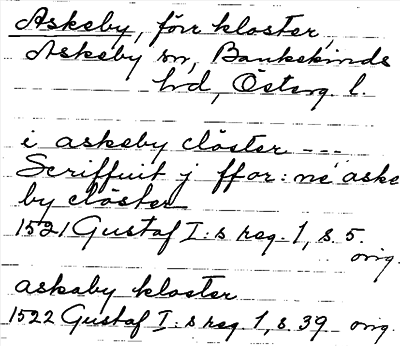 Askeby, förr kloster,
Askeby sn, Bankekinds
hd, Österg. l.
i askeby clöster ---
Scriffuit j ffor: ne aske
by clöster
1521 Gustaf I:s reg. 1, s. 5.
orig.
askaby kloster
1522 Gustaf I:s reg. 1, s. 39 orig.